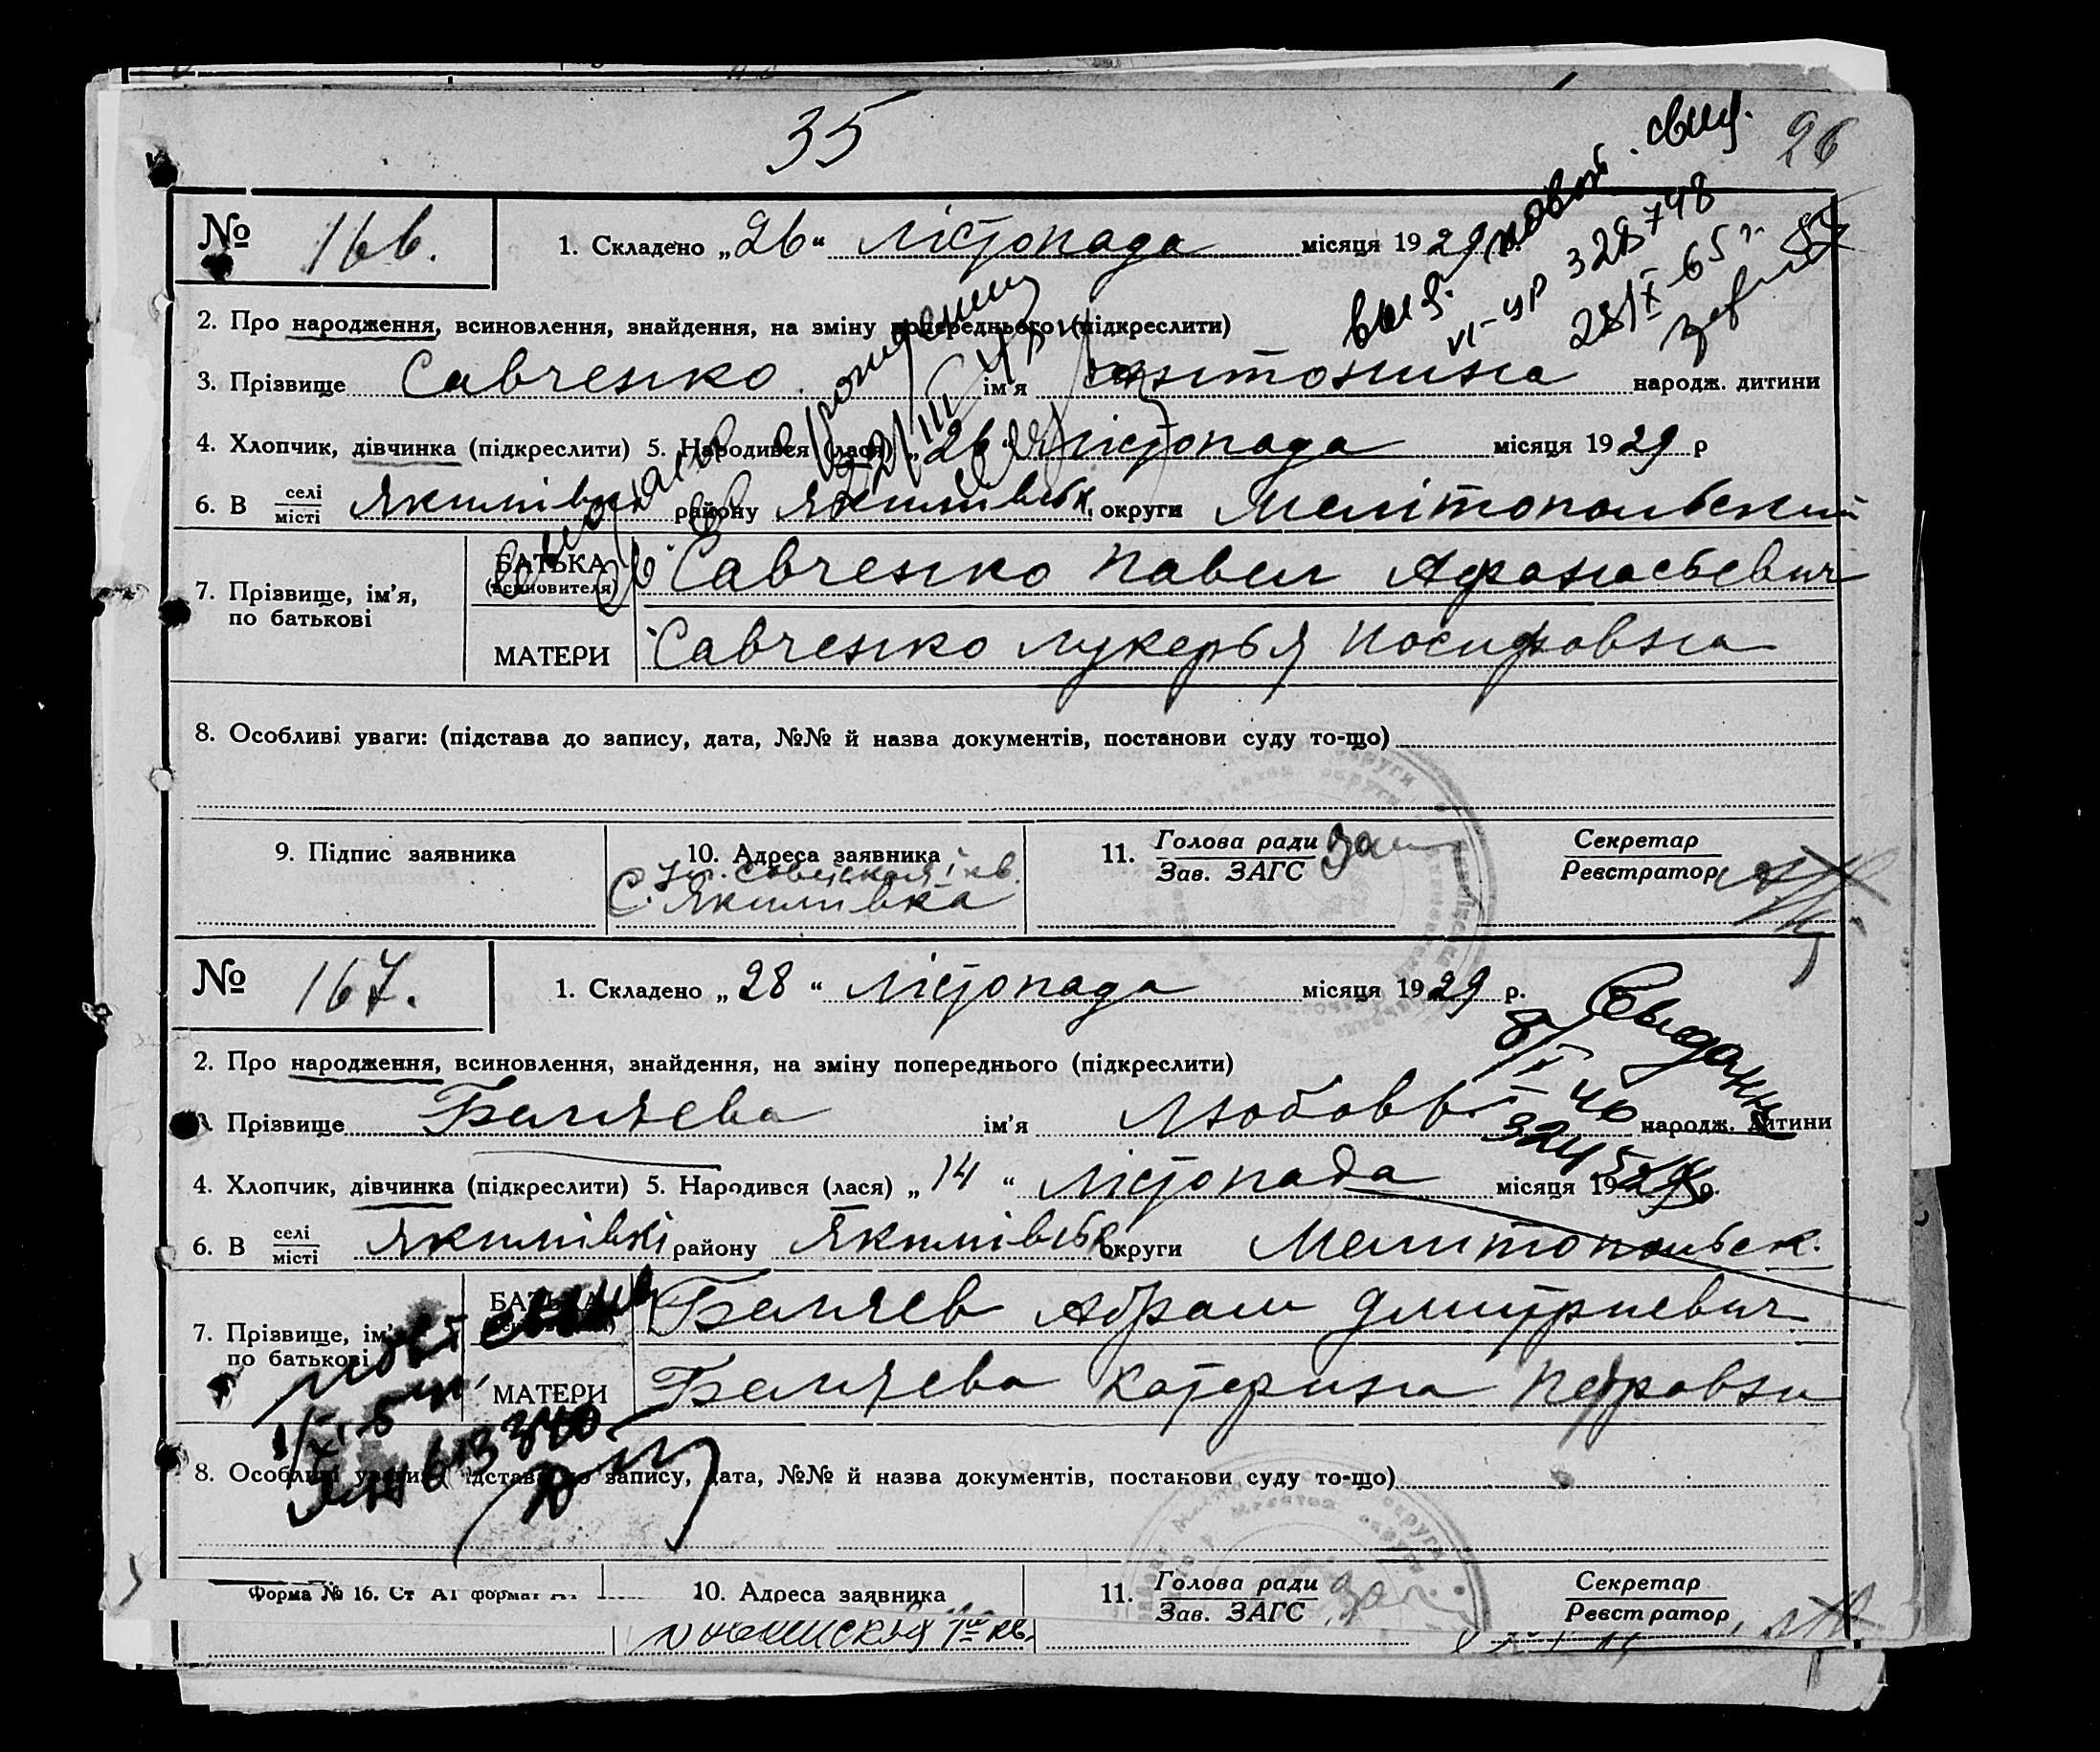 35
26
№ 166.
1. Складено „26“ лістопада місяця 1929 р.
выд. повт. свид.
VI-УР 328748
28/IX-65 г.
2. Про народження, всиновлення, знайдення, на зміну попереднього (підкреслити)
3. Прізвище Савченко ім'я Антонина народж. дитини
4. Хлопчик, дівчинка (підкреслити) 5. Народився (лася) „26“ лістопада місяця 1929 р
6. В селі місті Якимівкі району Якимівськ. округи Мелітопольский
7. Прізвище, ім'я, по батькові
БАТЬКА (всиновителя) Савченко Павел Афанасьевич
МАТЕРИ Савченко Лукерья Иосифовна
8. Особливі уваги: (підстава до запису, дата, №№ й назва документів, постанови суду то-що)
9. Підпис заявника
10. Адреса заявника
ул. Совецкая 1 кв.
С. Якимівка
11. Голова ради
Зав. ЗАГС
Секретар
Реєстратор
№ 167.
1. Складено „28“ лістопада місяця 1929 р.
Выдано
8/II 46
2. Про народження, всиновлення, знайдення, на зміну попереднього (підкреслити)
3. Прізвище Беляева ім'я Любовь народж. дитини
4. Хлопчик, дівчинка (підкреслити) 5. Народився (лася) „14“ лістопада місяця 1929 р.
6. В селі місті Якимівкі району Якимівськ округи Мелитопольск.
7. Прізвище, ім'я, по батькові
БАТЬКА Беляев Абрам Дмитриевич
МАТЕРИ Беляева Катерина Петровна
8. Особливі уваги: (підстава до запису, дата, №№ й назва документів, постанови суду то-що)
Форма № 16. Ст А1 формат
10. Адреса заявника
11. Голова ради
Зав. ЗАГС
Секретар
Реєстратор